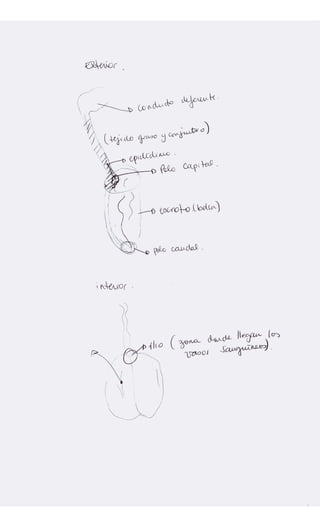 Exterior.
conducto deferente.
(tejido graso y conjuntivo)
epidídimo.
Polo capital.
escroto (bolsa)
polo caudal.
interior.
Hilio (zona donde llegan los
vasos sanguíneos).